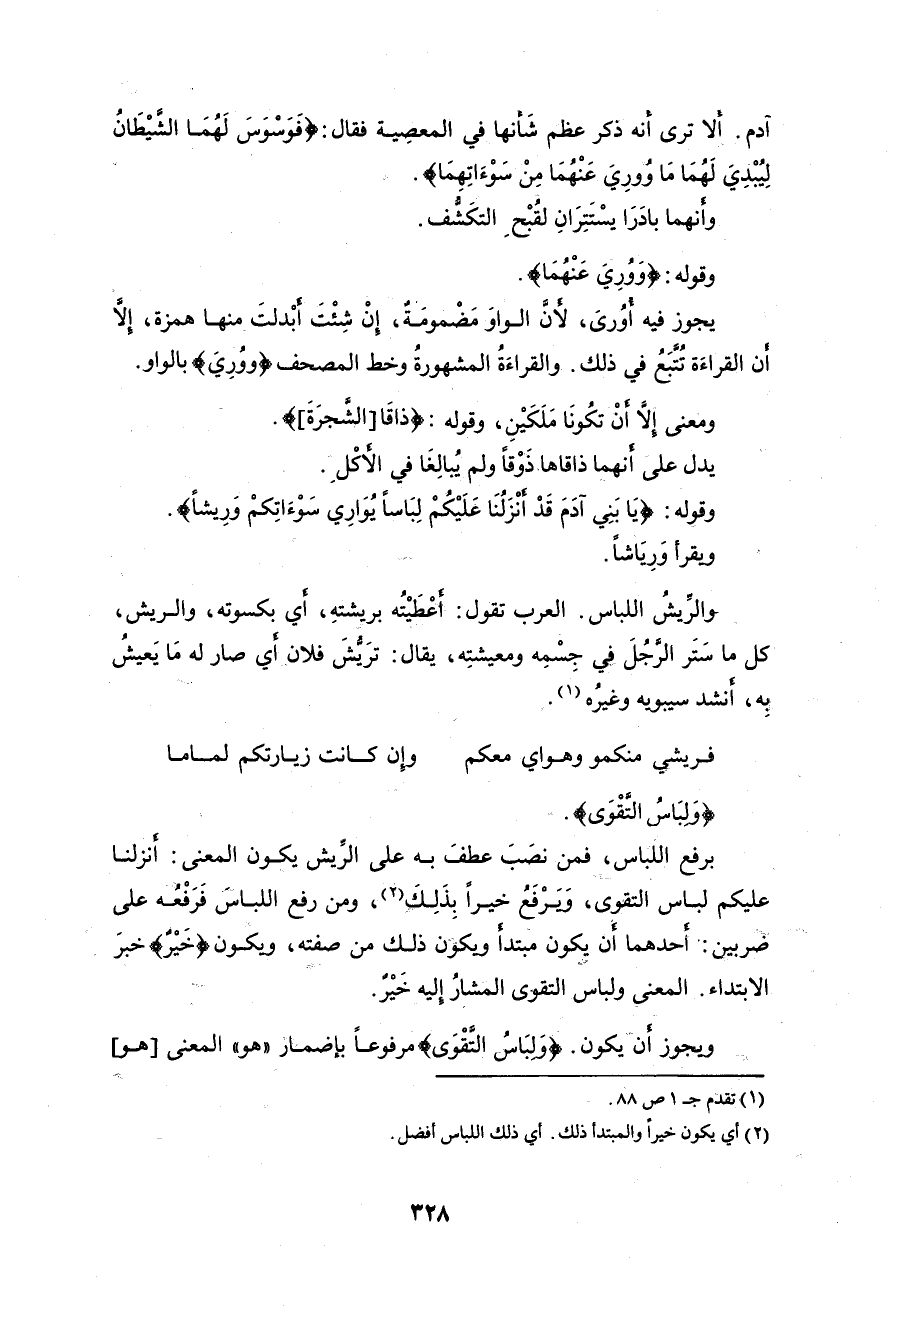 آدم. أَلا ترى أَنه ذكر عظم شَأنها في المعصِية فقال: ﴿فَوَسْوَسَ لَهُمَا الشَّيْطَانُ
لِيُبْدِيَ لَهُمَا مَا وُورِيَ عَنْهُمَا مِنْ سَوْءَاتِهِمَا﴾.
وأَنهما بادَرَا يسْتَتِرَانِ لقُبْحِ التكَشُّف.
وقوله: ﴿وَوُرِيَ عَنْهُمَا﴾.
يجوز فيه أُورىَ، لأَنَّ الواوَ مَضْمومَةٌ، إنْ شِئْتَ أَبْدلتَ منها همزة، إلَّا
أَن القراءَة تُتَّبَعُ في ذلك. والقراءَةُ المشهورةُ وخط المصحف ﴿وورِيَ﴾ بالواو.
ومعنى إلَّا أَنْ تكُونَا مَلَكَيْنِ، وقوله: ﴿ذاقَا [الشَّجرَةَ]﴾.
يدل على أَنهما ذاقاها ذَوْقاً ولم يُبالِغَا في الأَكْلِ.
وقوله: ﴿يَا بَنِي آدَمَ قَدْ أَنْزَلْنَا عَلَيْكُمْ لِبَاساً يُوَارِي سَوْءَاتِكمْ وَرِيشاً﴾.
ويقرأ وَرِيَاشاً.
والرِّيشُ اللباس. العرب تقول: أَعْطَيْتُه بريشتهِ، أَي بكسوته، والريش،
كل ما سَتَر الرَّجُلَ في جِسْمِه ومعيشتِه، يقال: تريَّشَ فلان أَي صار له مَا يَعيشُ
بِه، أَنشد سيبويه وغيرُه (١).
فريشي منكمو وهواي معكم وإن كانت زيارتكم لماما
﴿وَلِبَاسُ التَّقْوَى﴾.
برفع اللباس، فمن نصَبَ عطفَ به على الرِّيش يكون المعنى: أَنزلنا
عليكم لباس التقوى، وَيَرْفَعُ خيراً بِذَلِكَ (٢)، ومن رفع اللباسَ فَرَفْعُه على
ضربين: أَحدهما أَن يكون مبتدأ ويكون ذلك من صفته، ويكون ﴿خَيْرٌ﴾ خبرَ
الابتداء. المعنى ولباس التقوى المشارُ إليه خَيْرٌ.
ويجوز أَن يكون. ﴿وَلِبَاسُ التَّقْوَى﴾ مرفوعاً بإضمار «هو» المعنى [هو]
(١) تقدم جـ ١ ص ٨٨.
(٢) أي يكون خيراً والمبتدأ ذلك. أي ذلك اللباس أفضل.
٣٢٨